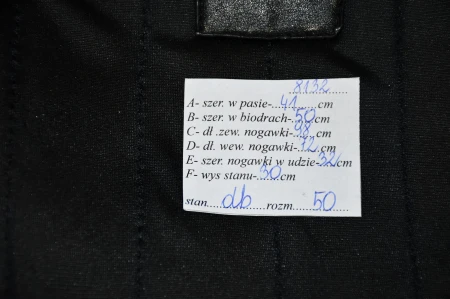 8132
A- szer. w pasie-....41......cm
B- szer. w biodrach-.50cm
C- dł .zew. nogawki-98.cm
D- dł. wew. nogawki-.72.cm
E- szer. nogawki w udzie-32cm
F- wys stanu-.30.cm
stan...db.......rozm....50......